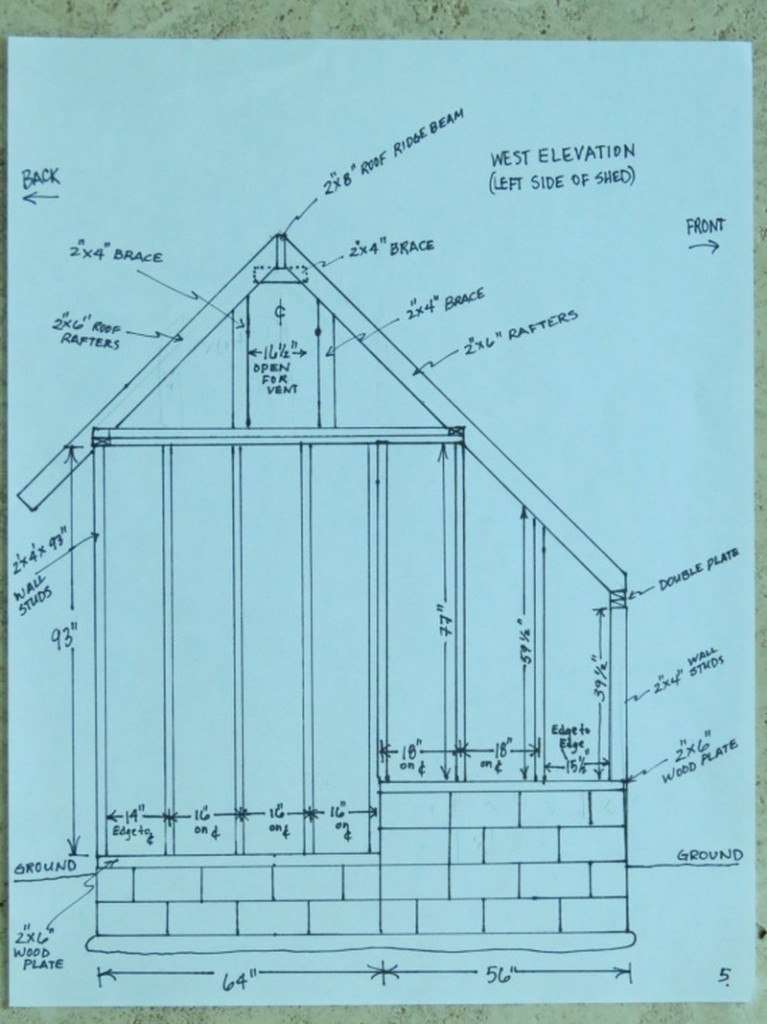 2"x8" ROOF RIDGE BEAM
WEST ELEVATION
(LEFT SIDE OF SHED)
BACK
FRONT
2"x4" BRACE
2"x4" BRACE
2"x6" ROOF
RAFTERS
2"x4" BRACE
2"x6" RAFTERS
℄
16½"
OPEN
FOR
VENT
2"x4"x93"
WALL
STUDS
93"
77"
59½"
39½"
DOUBLE PLATE
2"x4" WALL
STUDS
2"x6"
WOOD PLATE
18"
on ℄
18"
on ℄
Edge to
Edge
15½"
14"
Edge to ℄
16"
on ℄
16"
on ℄
16"
on ℄
GROUND
GROUND
2"x6"
WOOD
PLATE
64"
56"
5.